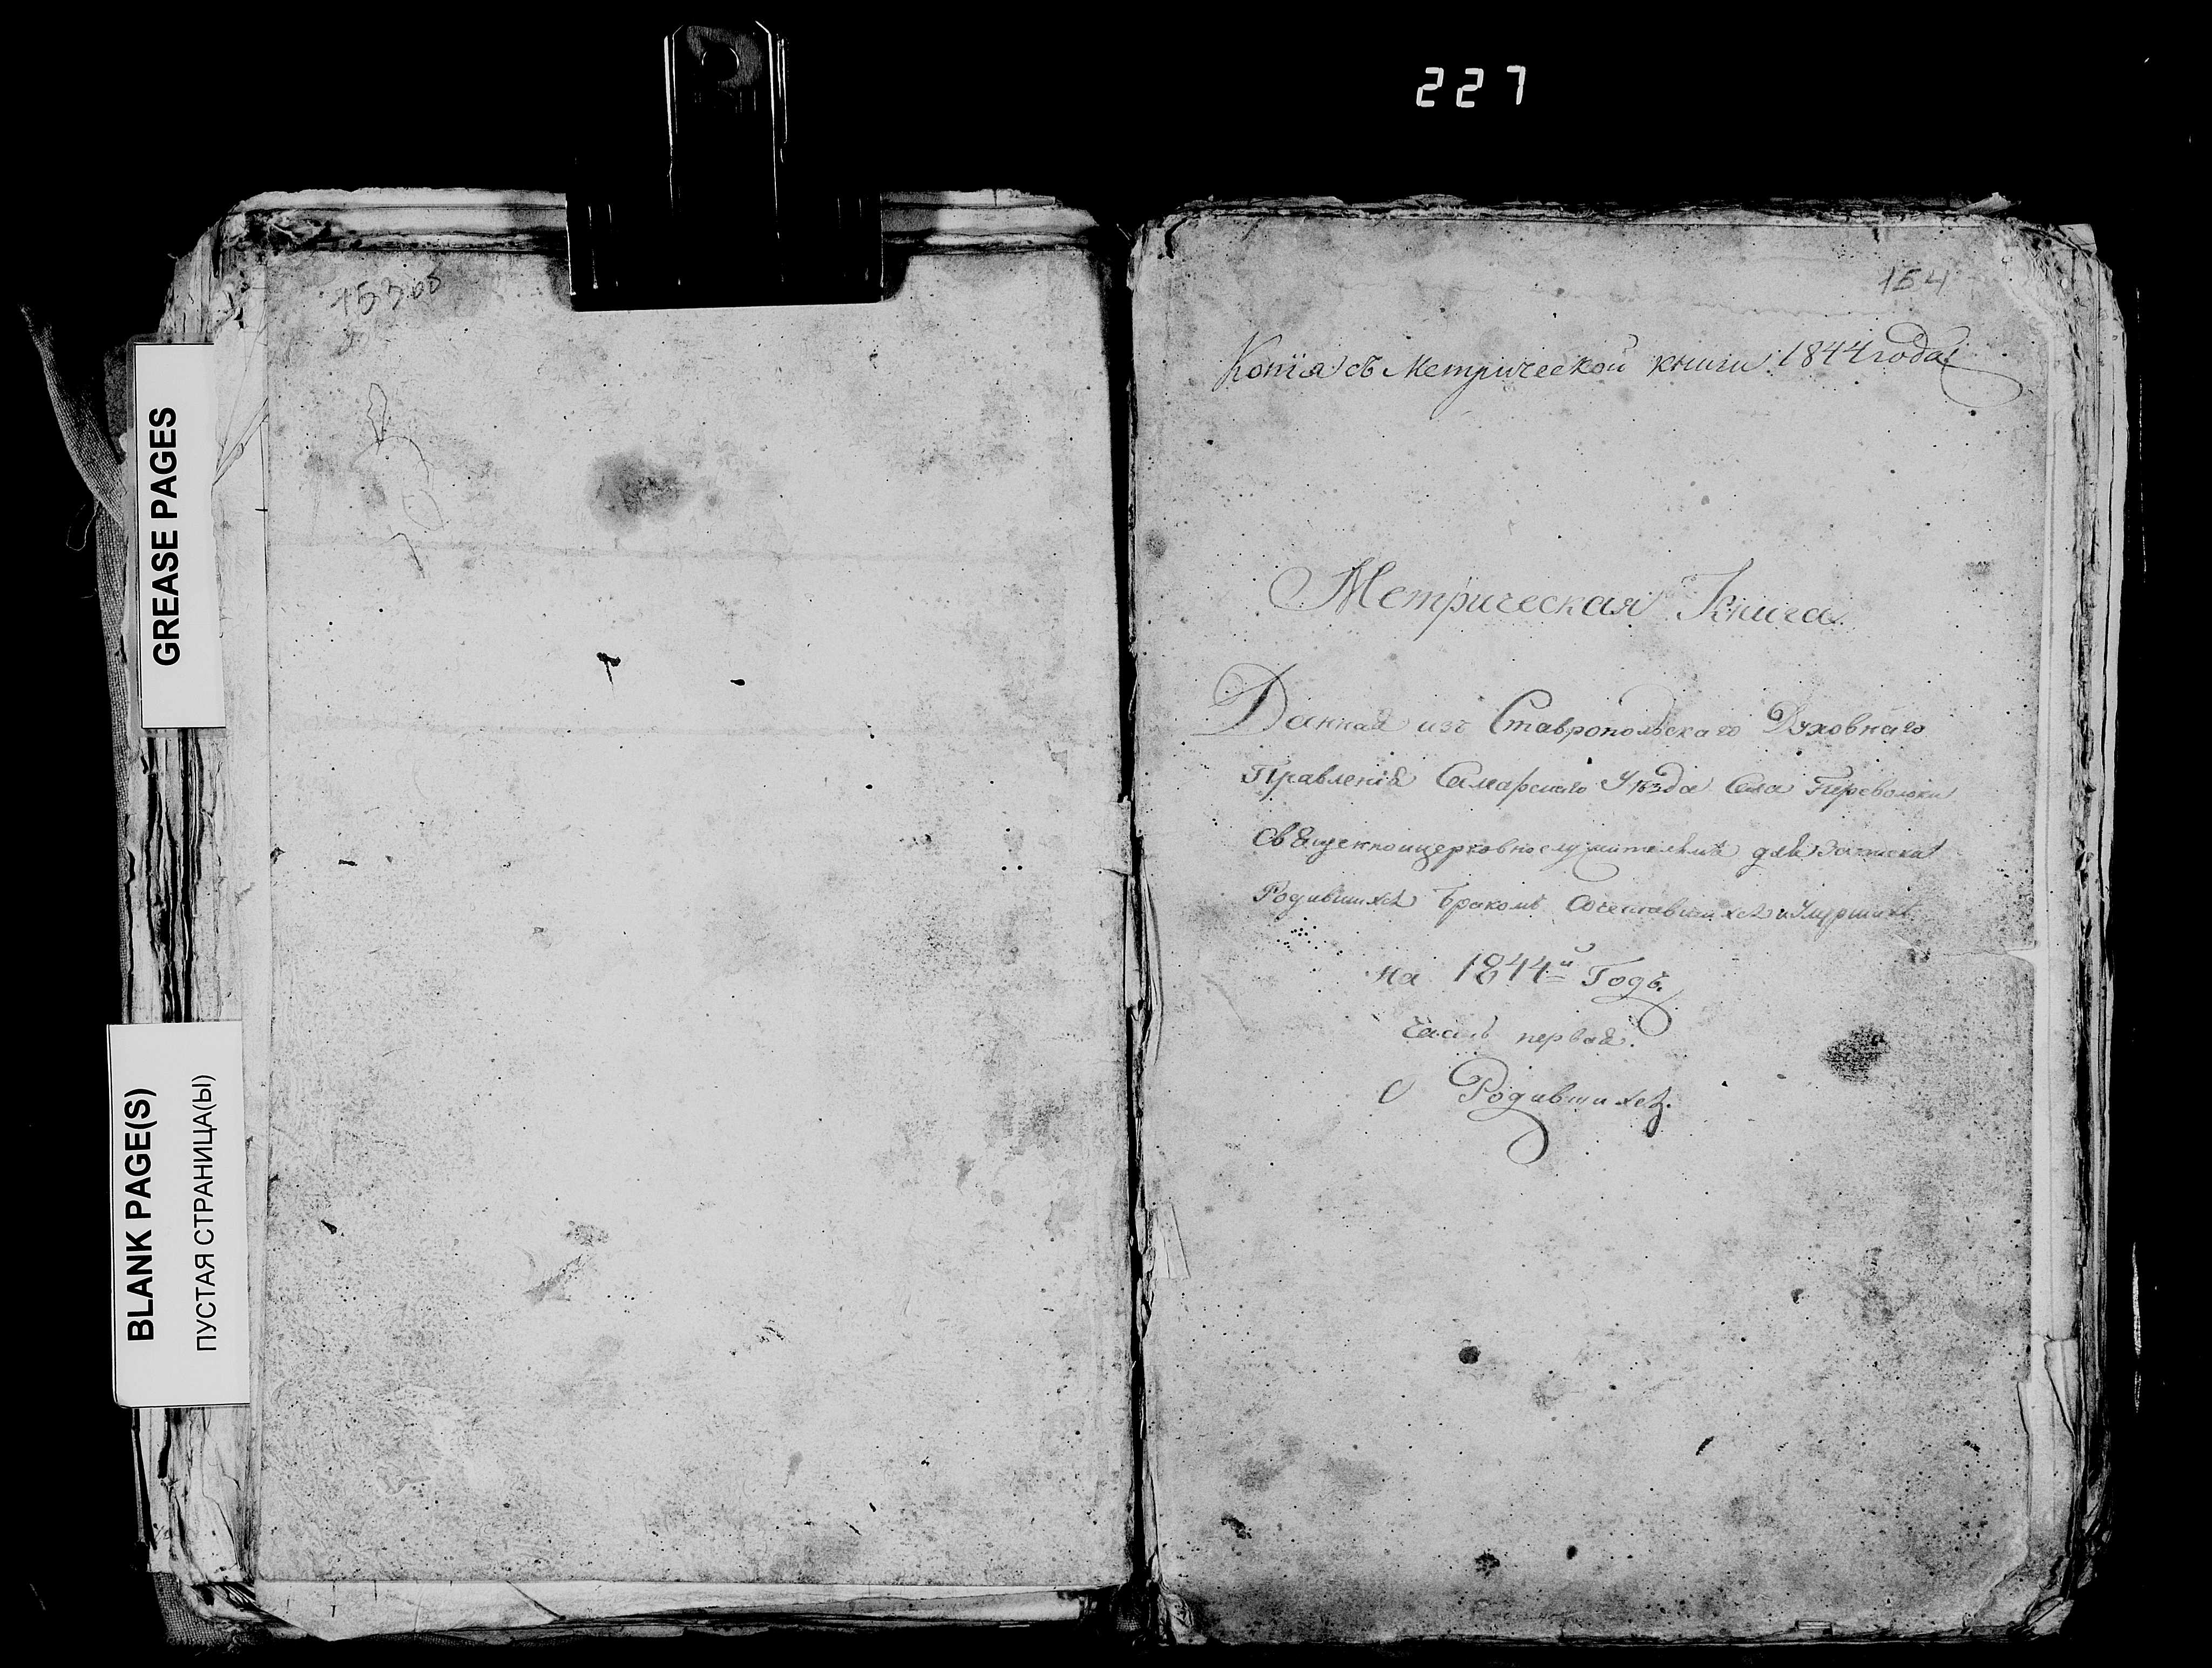 227
GREASE PAGES
BLANK PAGE(S)
ПУСТАЯ СТРАНИЦА(Ы)
154
Копїя съ Метрической книги 1844 года
Метрическая Книга
Данная изъ Ставропольскаго Духовнаго
Правленія Самарскаго Уѣзда Села Переволоки
Священноцерковнослужителямъ для записки
Родившихся Бракомъ Сочетавшихся и Умршихъ
на 1844й Годъ.
Часть первая.
О Родившихся.